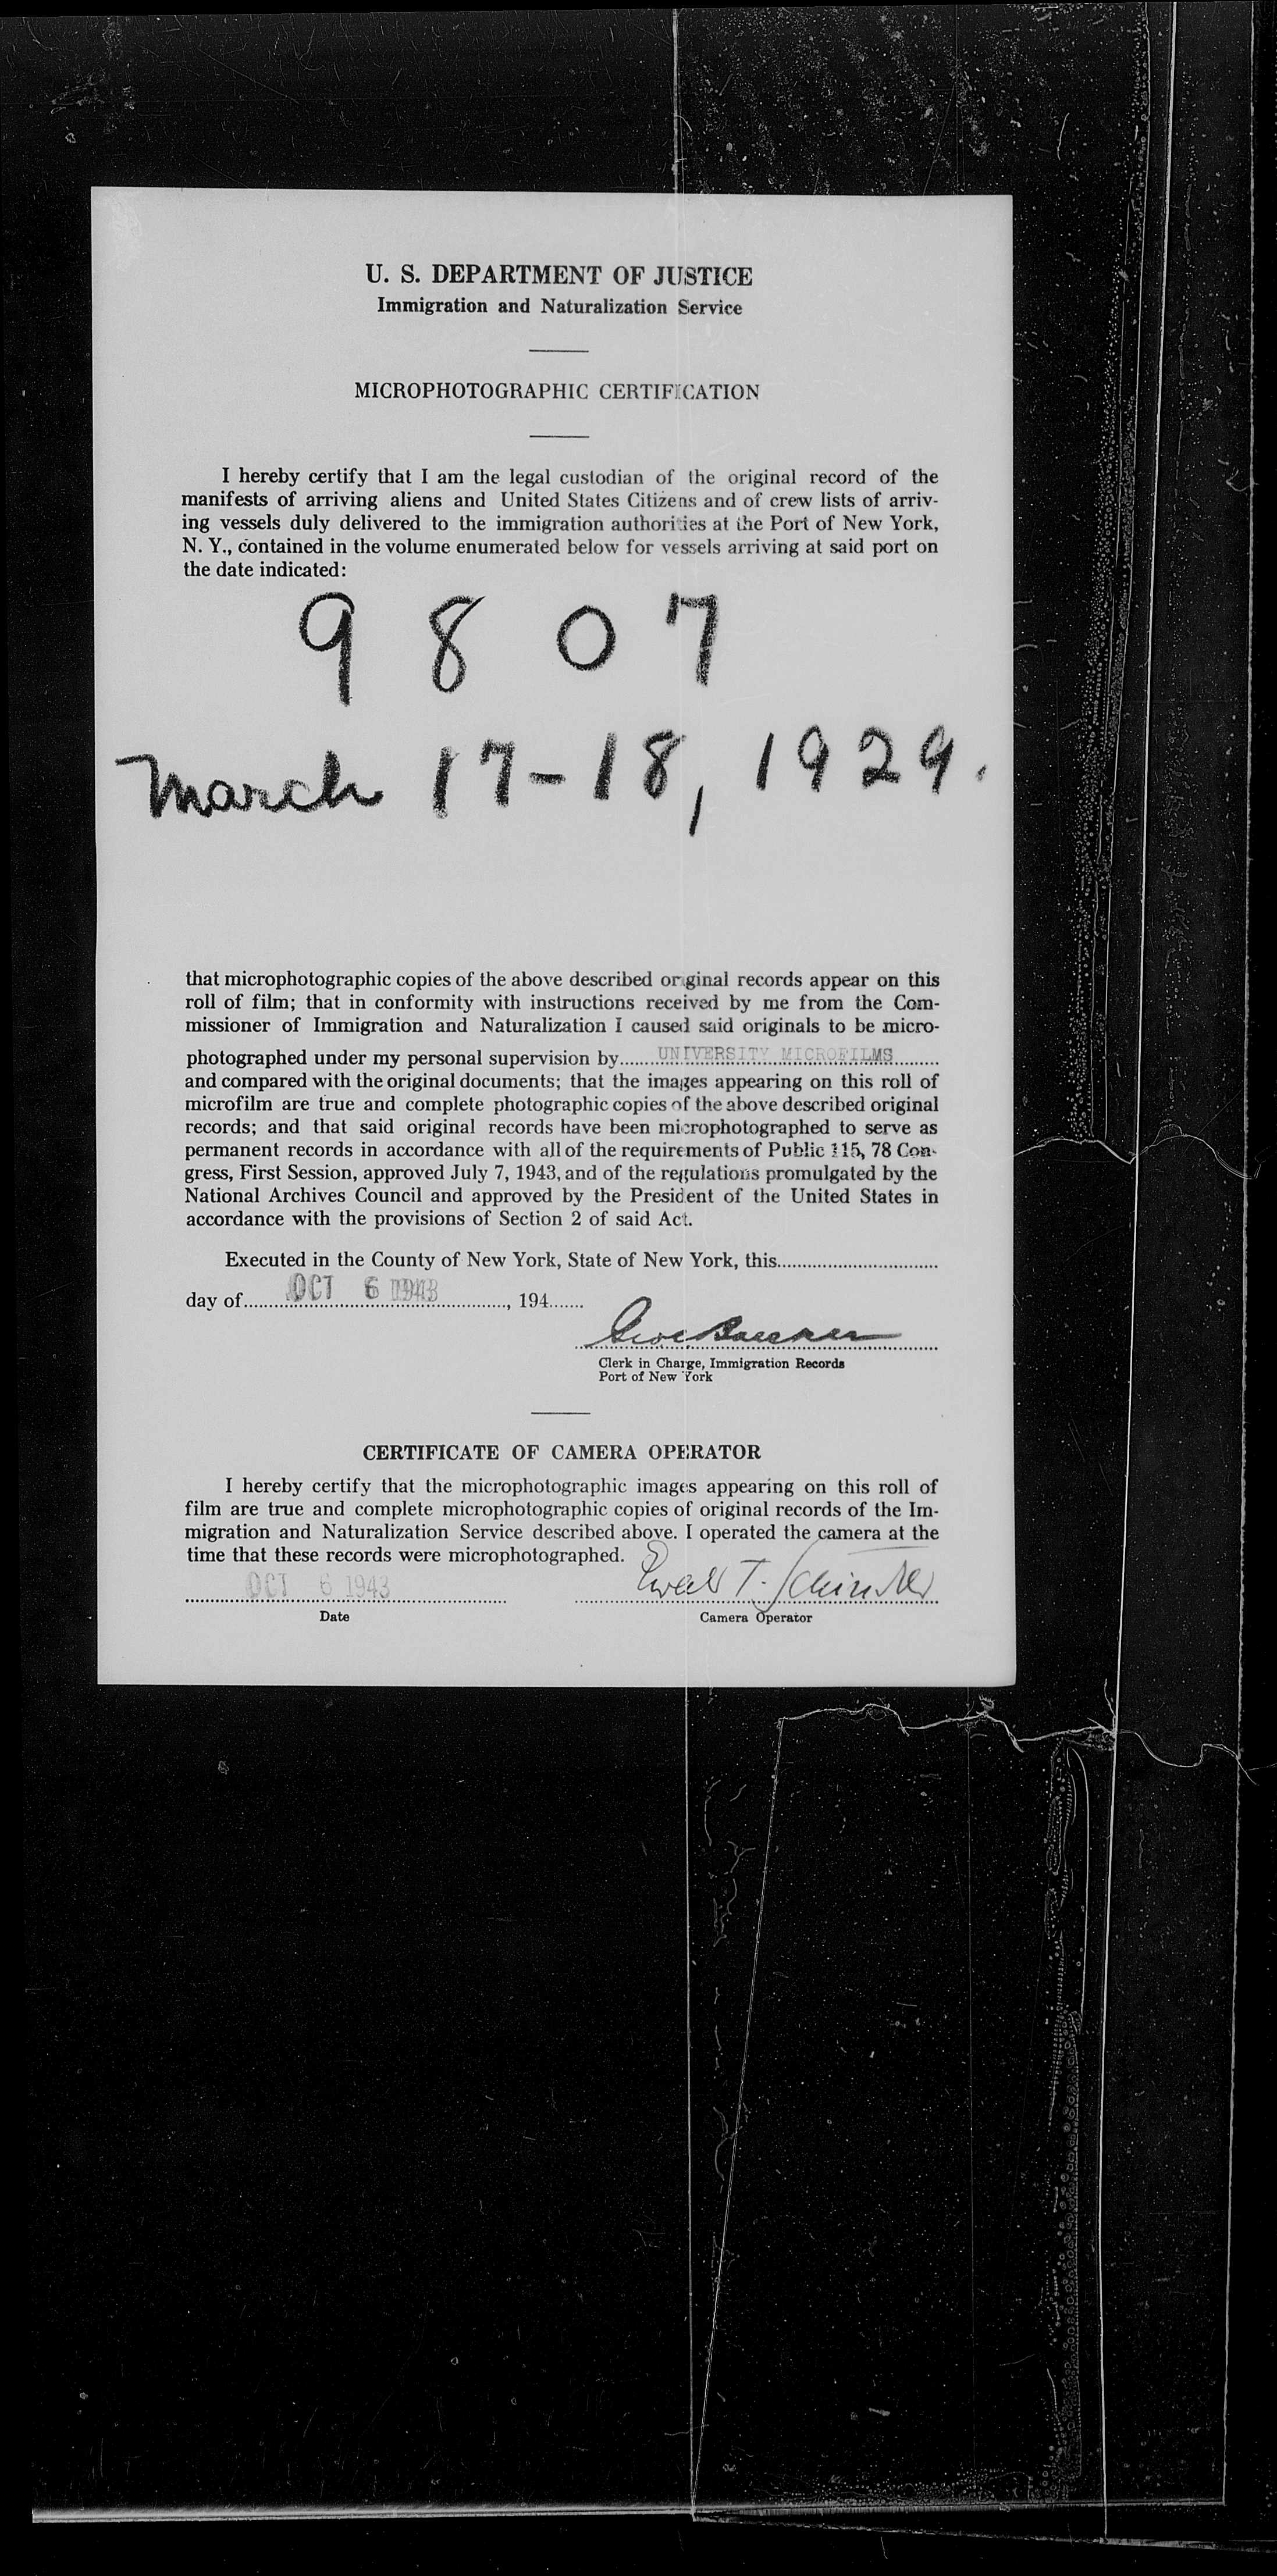 U. S. DEPARTMENT OF JUSTICE
Immigration and Naturalization Service
MICROPHOTOGRAPHIC CERTIFICATION
I hereby certify that I am the legal custodian of the original record of the
manifests of arriving aliens and United States Citizens and of crew lists of arriv-
ing vessels duly delivered to the immigration authorities at the Port of New York,
N. Y., contained in the volume enumerated below for vessels arriving at said port on
the date indicated:
9807
March 17-18, 1929.
that microphotographic copies of the above described original records appear on this
roll of film; that in conformity with instructions received by me from the Com-
missioner of Immigration and Naturalization I caused said originals to be micro-
photographed under my personal supervision by UNIVERSITY MICROFILMS
and compared with the original documents; that the images appearing on this roll of
microfilm are true and complete photographic copies of the above described original
records; and that said original records have been microphotographed to serve as
permanent records in accordance with all of the requirements of Public 115, 78 Con-
gress, First Session, approved July 7, 1943, and of the regulations promulgated by the
National Archives Council and approved by the President of the United States in
accordance with the provisions of Section 2 of said Act.
Executed in the County of New York, State of New York, this
day of OCT 6 1943, 194
Clerk in Charge, Immigration Records
Port of New York
CERTIFICATE OF CAMERA OPERATOR
I hereby certify that the microphotographic images appearing on this roll of
film are true and complete microphotographic copies of original records of the Im-
migration and Naturalization Service described above. I operated the camera at the
time that these records were microphotographed.
OCT 6 1943
Date
Camera Operator